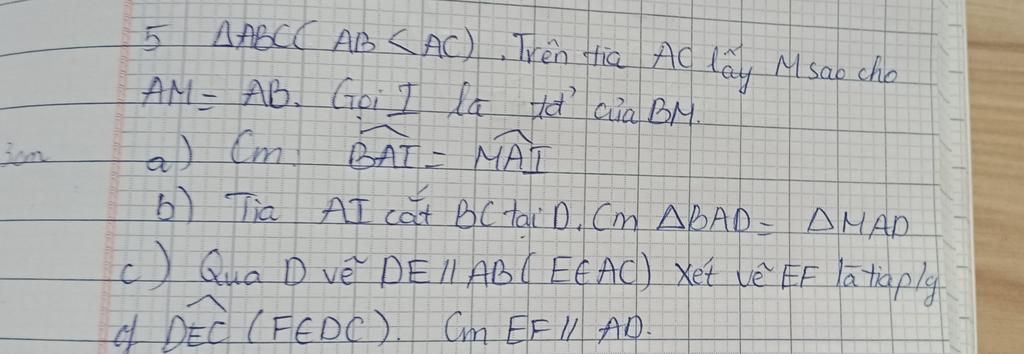 5 ΔABC( AB < AC). Trên tia AC lấy M sao cho
AM = AB. Gọi I là tđ' của BM.
a) Cm: \widehat{BAI} = \widehat{MAI}
b) Tia AI cắt BC tại D. Cm ΔBAD = ΔMAD
c) Qua D vẽ DE // AB ( E ∈ AC) xét vẽ EF là tia p/g
\widehat{DEC} (F ∈ DC). Cm EF // AD.